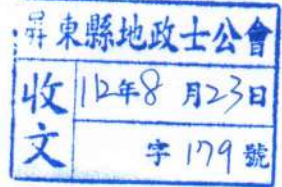 屏東縣地政士公會
收文
112年8月23日
字179號